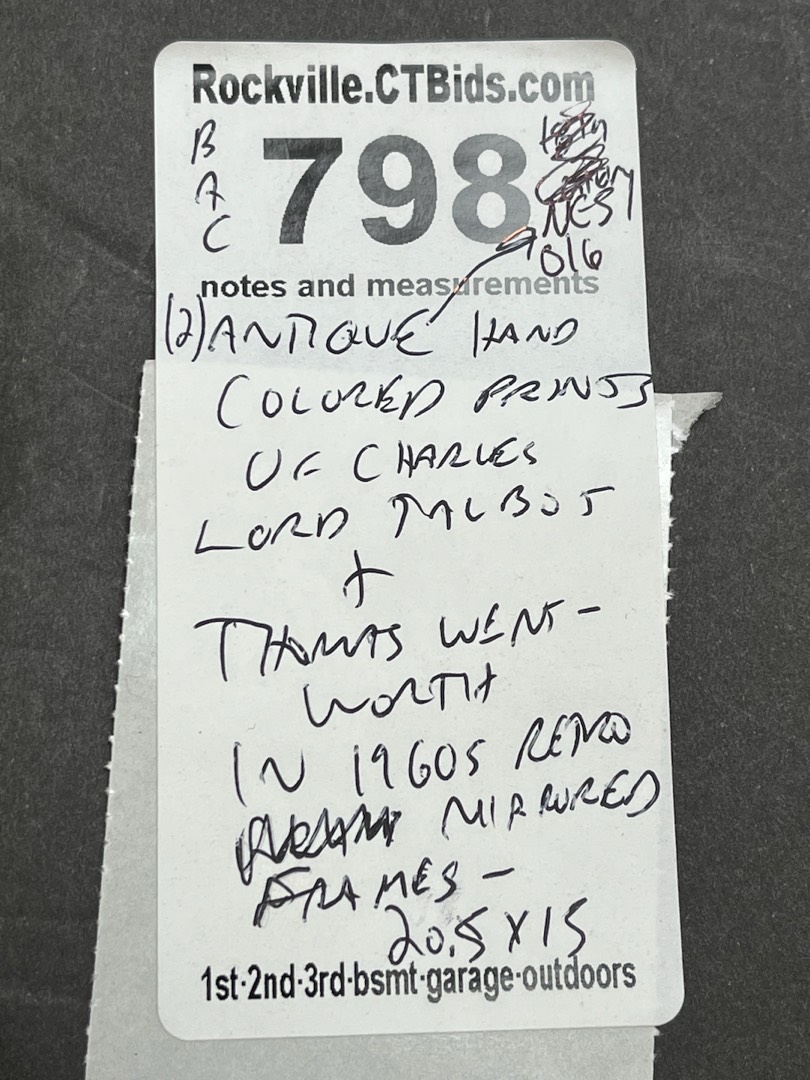 Rockville.CTBids.com
B
A
C
798
NCS
016
notes and measurements
(2) ANTIQUE HAND
COLORED PRINTS
OF CHARLES
LORD TALBOT
+
THOMAS WENT-
WORTH
IN 1960S RETRO
MIRRORED
FRAMES -
20.5 X 15
1st·2nd·3rd·bsmt·garage·outdoors